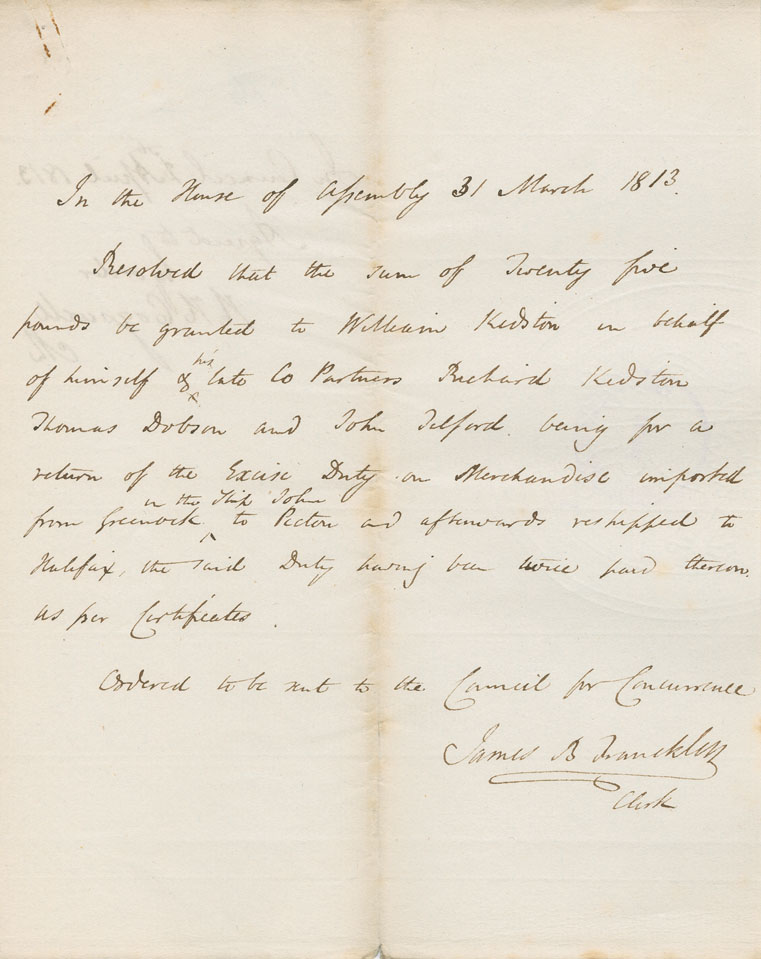 In the House of Assembly 31 March 1813.
Resolved that the sum of Twenty five
pounds be granted to William Kidston in behalf
of himself & his late Co Partners Richard Kidston
Thomas Dobson and John Telford. being for a
return of the Excise Duty on Merchandise imported
from Greenock in the Ship John to Pictou and afterwards reshipped to
Halifax, the said Duty having been twice paid thereon.
as per Certificates.
Ordered to be sent to the Council for Concurrence
James B Francklin
Clerk